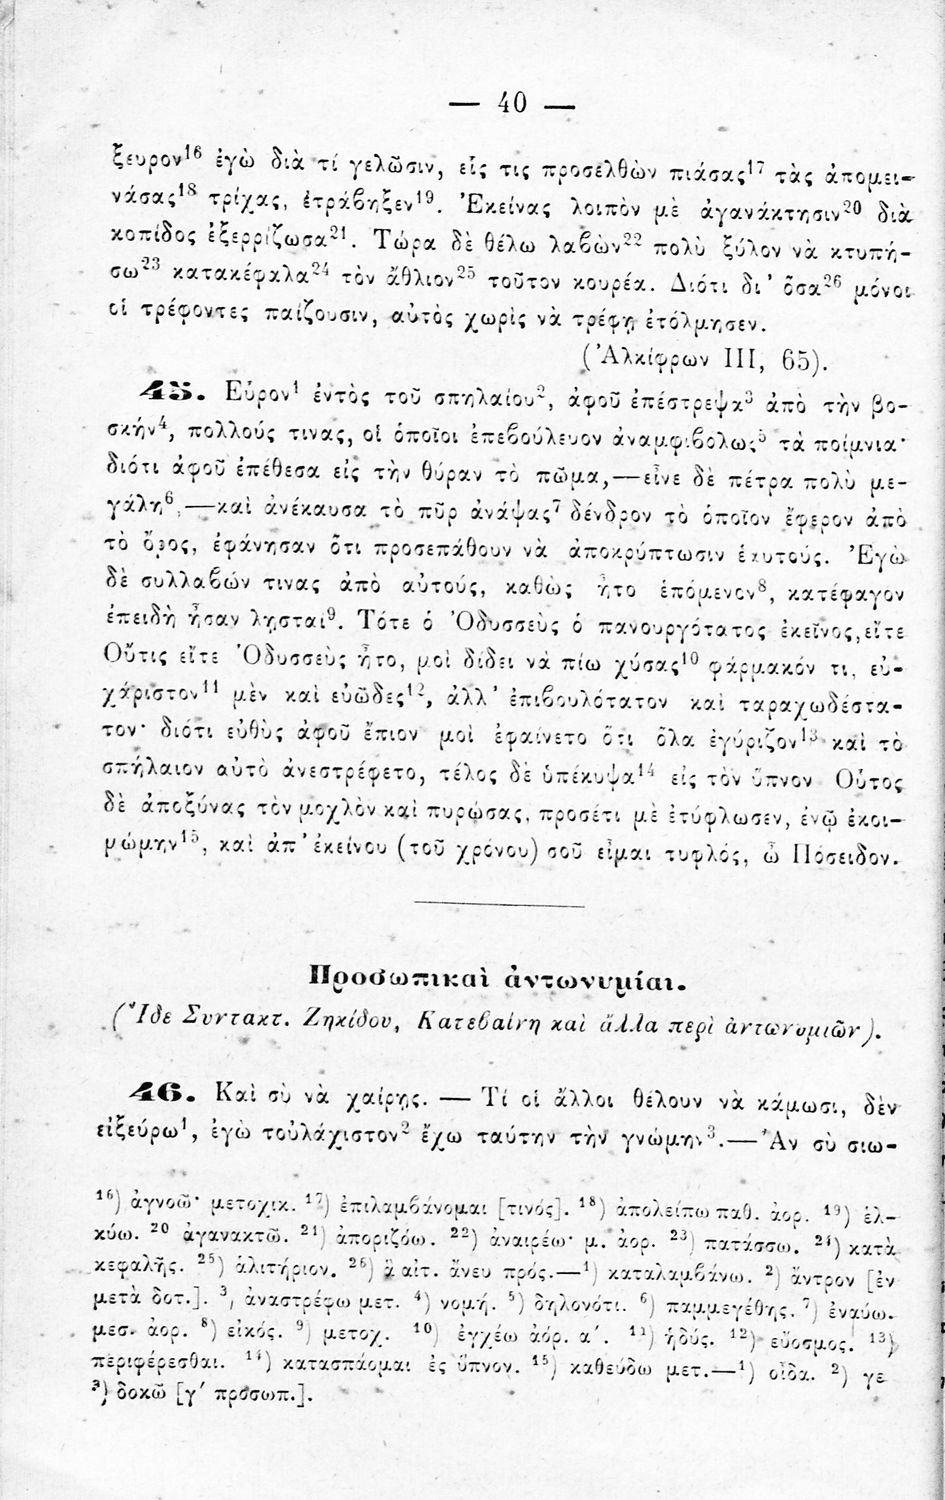 — 40 —
ξευρον¹⁶ ἐγὼ διὰ τί γελῶσιν, εἷς τις προσελθὼν πιάσας¹⁷ τὰς ἀπομει-
νάσας¹⁸ τρίχας, ἐτράβηξεν¹⁹. Ἐκείνας λοιπὸν μὲ ἀγανάκτησιν²⁰ διὰ
κοπίδος ἐξερρίζωσα²¹. Τώρα δὲ θέλω λαβὼν²² πολὺ ξύλον νὰ κτυπή-
σω²³ κατακέφαλα²⁴ τὸν ἄθλιον²⁵ τοῦτον κουρέα. Διότι δι’ ὅσα²⁶ μόνοι
οἱ τρέφοντες παίζουσιν, αὐτὸς χωρὶς νὰ τρέφῃ ἐτόλμησεν.
(Ἀλκίφρων III, 65).
45. Εὗρον¹ ἐντὸς τοῦ σπηλαίου², ἀφοῦ ἐπέστρεψα³ ἀπὸ τὴν βο-
σκήν⁴, πολλούς τινας, οἱ ὁποῖοι ἐπεβούλευον ἀναμφιβόλως⁵ τὰ ποίμνια·
διότι ἀφοῦ ἐπέθεσα εἰς τὴν θύραν τὸ πῶμα,—εἶνε δὲ πέτρα πολὺ με-
γάλη⁶,—καὶ ἀνέκαυσα τὸ πῦρ ἀνάψας⁷ δένδρον τὸ ὁποῖον ἔφερον ἀπὸ
τὸ ὄρος, ἐφάνησαν ὅτι προσεπάθουν νὰ ἀποκρύπτωσιν ἑαυτούς. Ἐγὼ
δὲ συλλαβών τινας ἀπὸ αὐτούς, καθὼς ἦτο ἑπόμενον⁸, κατέφαγον
ἐπειδὴ ἦσαν λῃσταί⁹. Τότε ὁ Ὀδυσσεὺς ὁ πανουργότατος ἐκεῖνος, εἴτε
Οὔτις εἴτε Ὀδυσσεὺς ἦτο, μοὶ δίδει νὰ πίω χύσας¹⁰ φάρμακόν τι, εὐ-
χάριστον¹¹ μὲν καὶ εὐῶδες¹², ἀλλ’ ἐπιβουλότατον καὶ ταραχωδέστα-
τον· διότι εὐθὺς ἀφοῦ ἔπιον μοὶ ἐφαίνετο ὅτι ὅλα ἐγύριζον¹³ καὶ τὸ
σπήλαιον αὐτὸ ἀνεστρέφετο, τέλος δὲ ὑπέκυψα¹⁴ εἰς τὸν ὕπνον Οὗτος
δὲ ἀποξύνας τὸν μοχλὸν καὶ πυρώσας, προσέτι μὲ ἐτύφλωσεν, ἐνῷ ἐκοι-
μώμην¹⁵, καὶ ἀπ’ ἐκείνου (τοῦ χρόνου) σοῦ εἶμαι τυφλός, ὦ Πόσειδον.
Προσωπικαὶ ἀντωνυμίαι.
(Ἴδε Συντακτ. Ζηκίδου, Κατεβαίνη καὶ ἄλλα περὶ ἀντωνυμιῶν).
46. Καὶ σὺ νὰ χαίρῃς. — Τί οἱ ἄλλοι θέλουν νὰ κάμωσι, δὲν
εἰξεύρω¹, ἐγὼ τοὐλάχιστον² ἔχω ταύτην τὴν γνώμην³.—Ἂν σὺ σιω-
¹⁶) ἀγνοῶ· μετοχικ. ¹⁷) ἐπιλαμβάνομαι [τινός]. ¹⁸) ἀπολείπω παθ. ἀορ. ¹⁹) ἑλ-
κύω. ²⁰ ἀγανακτῶ. ²¹) ἀποριζόω. ²²) ἀναιρέω· μ. ἀορ. ²³) πατάσσω. ²⁴) κατὰ
κεφαλῆς. ²⁵) ἀλιτήριον. ²⁶) ἃ αἰτ. ἄνευ πρός.—¹) καταλαμβάνω. ²) ἄντρον [ἐν
μετὰ δοτ.]. ³) ἀναστρέφω μετ. ⁴) νομή. ⁵) δηλονότι. ⁶) παμμεγέθης. ⁷) ἐναύω.
μεσ. ἀορ. ⁸) εἰκός. ⁹) μετοχ. ¹⁰) ἐγχέω ἀόρ. α΄. ¹¹) ἡδύς. ¹²) εὔοσμος. ¹³)
περιφέρεσθαι. ¹⁴) κατασπάομαι ἐς ὕπνον. ¹⁵) καθεύδω μετ.—¹) οἶδα. ²) γε
³) δοκῶ [γ΄ πρόσωπ.].